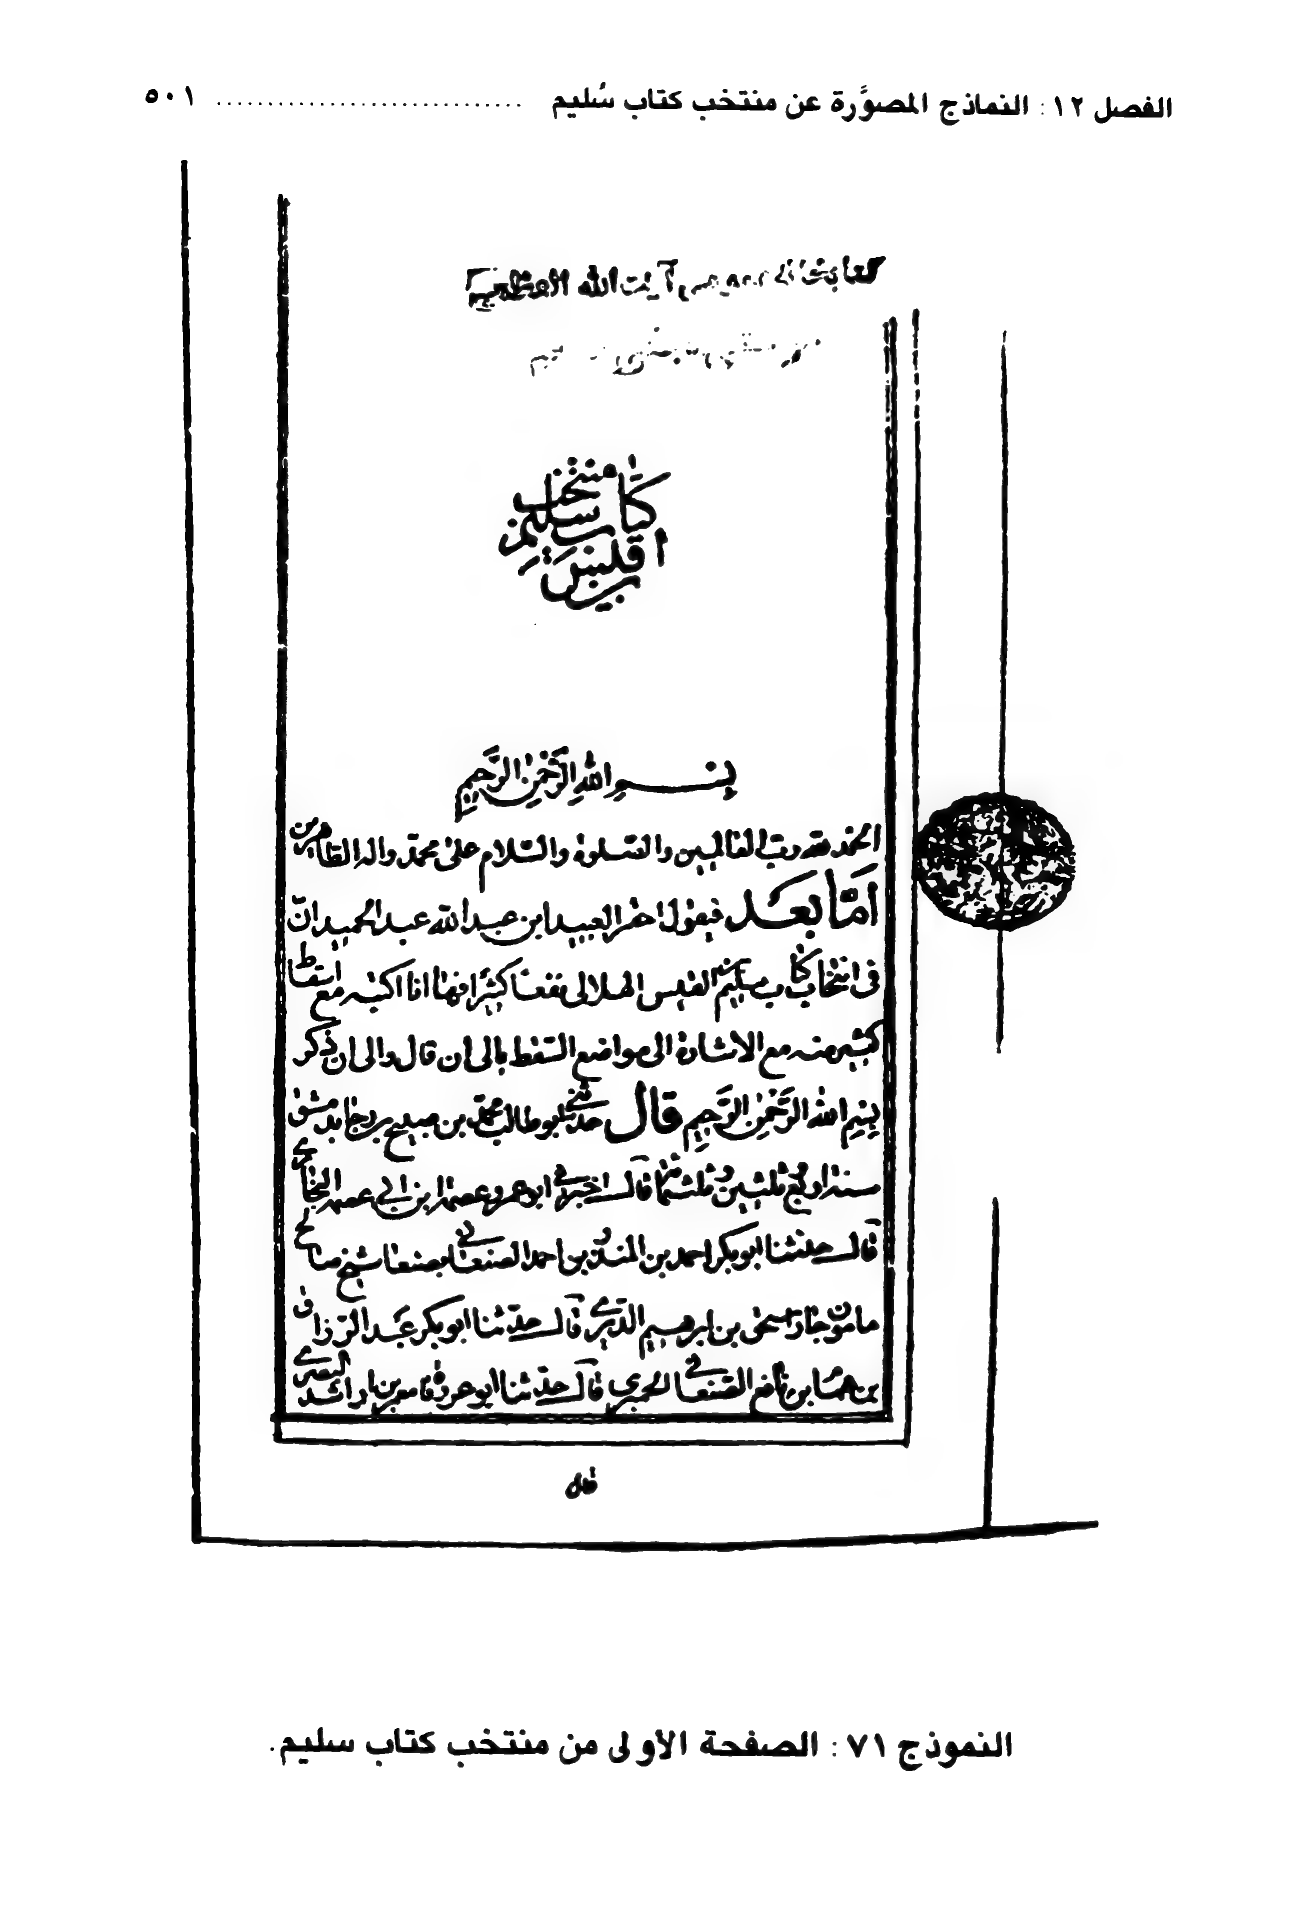 الفصل ١٢ : النماذج المصوَّرة عن منتخب كتاب سُليم ............................. ٥٠١
آيت الله
منتخب
كتاب سليم بن
قيس
بسم الله الرحمن الرحيم
الحمد لله رب العالمين والصلوة والسلام على محمد واله الطاهرين
امّا بعد فيقول احقر العبيد ابن عبد الله عبد الحميد ان
فى انتخاب كتاب سليم القيس الهلالى نفعا كثيرا فها انا اكتبه مع اسقاط
كثير منه مع الاشارة الى مواضع السقط بالى ان قال والى ان ذكر
بسم الله الرحمن الرحيم قال حدثنى ابو طالب محمد بن صبيح بن رجا بدمشق
سنة اربع وثلثين وثلثمائة قال اخبرنى ابو عمرو عصمة ابن ابى عصمة البخارى
قال حدثنا ابو بكر احمد بن المنذر بن احمد الصنعانى بصنعا شيخ صالح
مامون جار اسحق بن ابرهيم الدبرى قال حدّثنا ابو بكر عبد الرزاق
بن همام بن نافع الصنعانى الحميرى قال حدّثنا ابو عروة معمر بن راشد البصرى
قال
النموذج ٧١ : الصفحة الأولى من منتخب كتاب سليم.